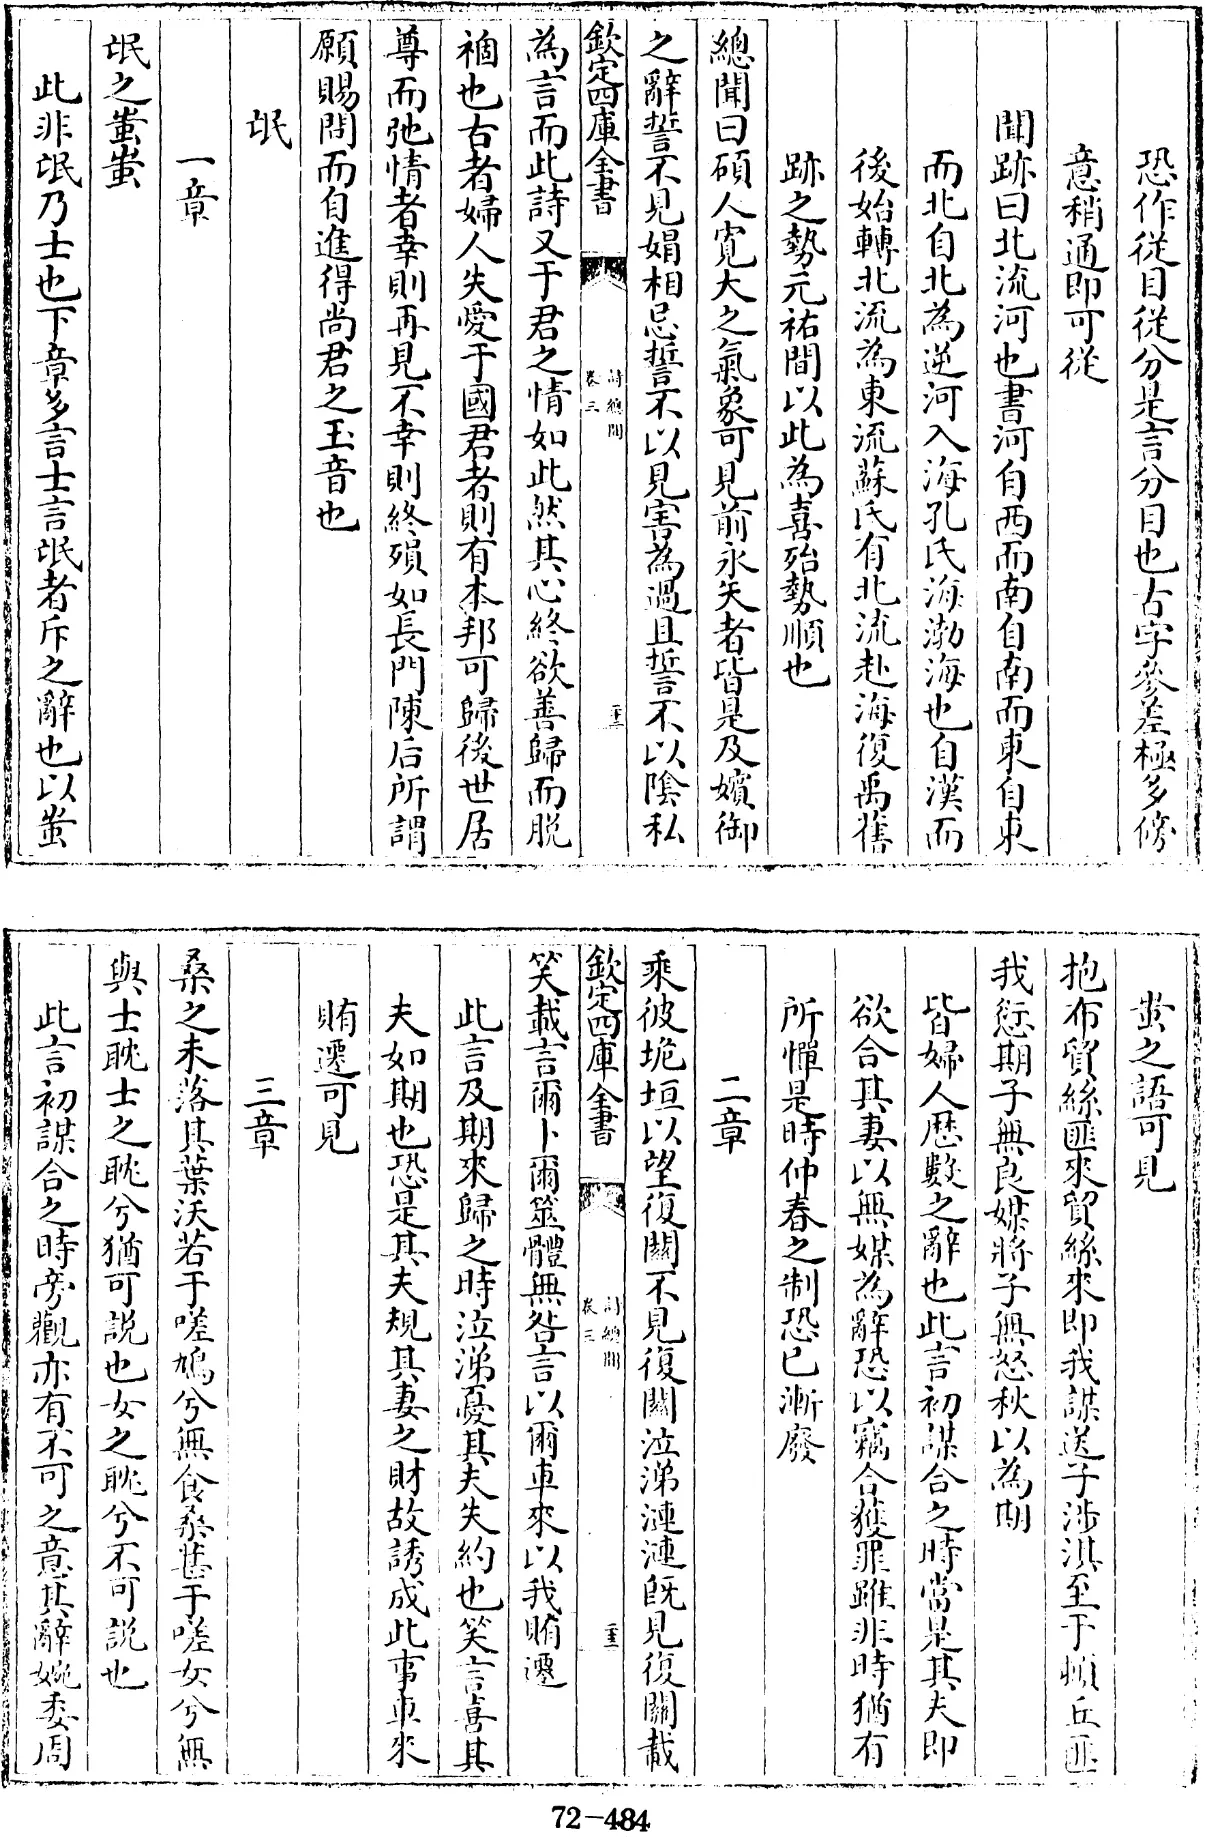 恐作從目從分是言分目也古字參差極多傍
意稍通即可從
聞跡曰北流河也書河自西而南自南而東自東
而北自北為逆河入海孔氏海渤海也自漢而
後始轉北流為東流蘇氏有北流赴海復禹舊
跡之勢元祐間以此為喜殆勢順也
總聞曰碩人寛大之氣象可見前永矢者皆是及嬪御
之辭誓不見娼相忌誓不以見害為過且誓不以陰私
欽定四庫全書
詩總聞
卷三
二十二
為言而此詩又于君之情如此然其心終欲善歸而脱
禍也古者婦人失愛于國君者則有本邦可歸後世居
尊而弛情者幸則再見不幸則終殞如長門陳后所謂
願賜問而自進得尚君之玉音也
氓
一章
氓之蚩蚩
此非氓乃士也下章多言士言氓者斥之辭也以蚩
蚩之語可見
抱布貿絲匪來貿絲來即我謀送子涉淇至于頓丘匪
我愆期子無良媒將子無怒秋以為期
皆婦人歴數之辭也此言初謀合之時當是其夫即
欲合其妻以無媒為辭恐以竊合獲罪雖非時猶有
所憚是時仲春之制恐已漸廢
二章
乘彼垝垣以望復關不見復關泣涕漣漣既見復關載
欽定四庫全書
詩總聞
卷三
二十三
笑載言爾卜爾筮體無咎言以爾車來以我賄遷
此言及期來歸之時泣涕憂其夫失約也笑言喜其
夫如期也恐是其夫規其妻之財故誘成此事車來
賄遷可見
三章
桑之未落其葉沃若于嗟鳩兮無食桑葚于嗟女兮無
與士耽士之耽兮猶可説也女之耽兮不可説也
此言初謀合之時旁觀亦有不可之意其辭婉委周
72-484